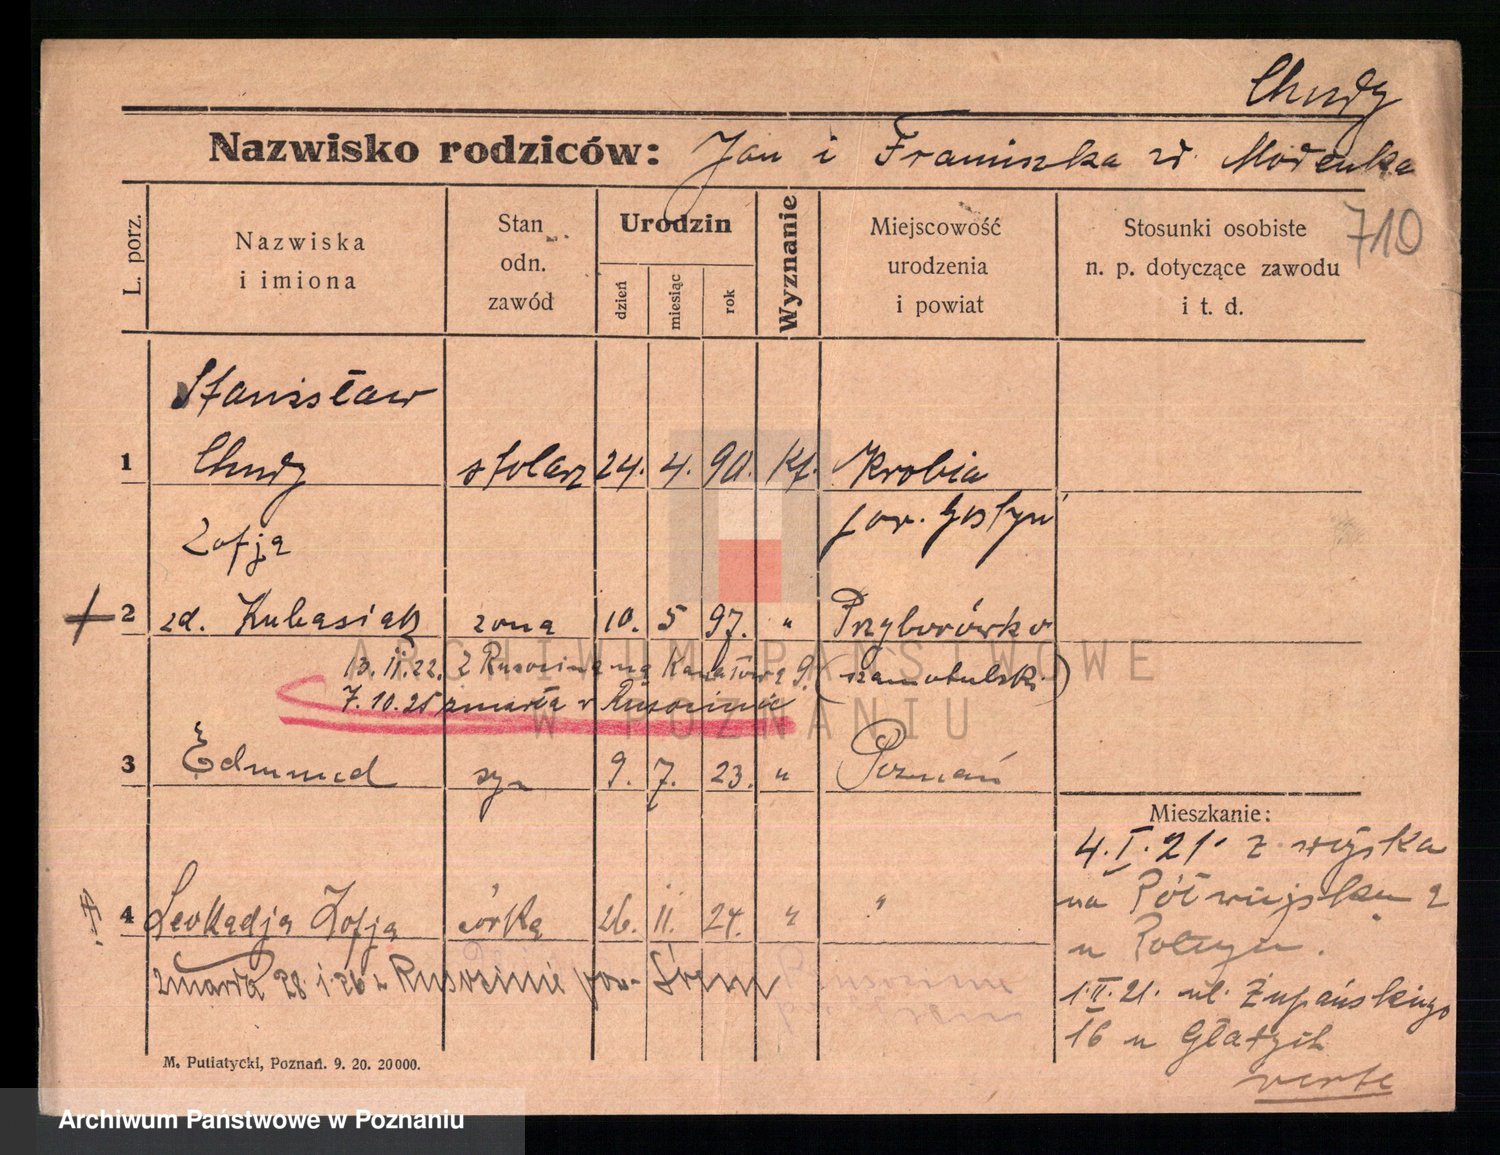 Chudy
Nazwisko rodziców: Jan i Franciszka zd.
710
L. porz.
Nazwiska
i imiona
Stan
odn.
zawód
Urodzin
dzień
miesiąc
rok
Wyznanie
Miejscowość
urodzenia
i powiat
Stosunki osobiste
n. p. dotyczące zawodu
i t. d.
Stanisław
1 Chudy stolarz 24. 4. 90. Kt. Krobia
pow. Gostyń
Zofja
2 zd. Kubasiak żona 10. 5 97. " Przyborówko
13. II. 22. z Rusocina na Kanałowa 9. (szamotulski)
7.10.25 zmarła w Rusocinie
3 Edmund syn 9. 7. 23. " Poznań
4 Leokadja Zofja córka 26. II. 24. " "
zmarła 28.1.26 w Rusocinie pow. Śrem
Mieszkanie:
4. I. 21. z wojska
na Półwiejska 2
u
1.II.21. ul. Żupańskiego
16 u
verte
M. Putiatycki, Poznań. 9. 20. 20000.
ARCHIWUM PAŃSTWOWE
W POZNANIU
Archiwum Państwowe w Poznaniu